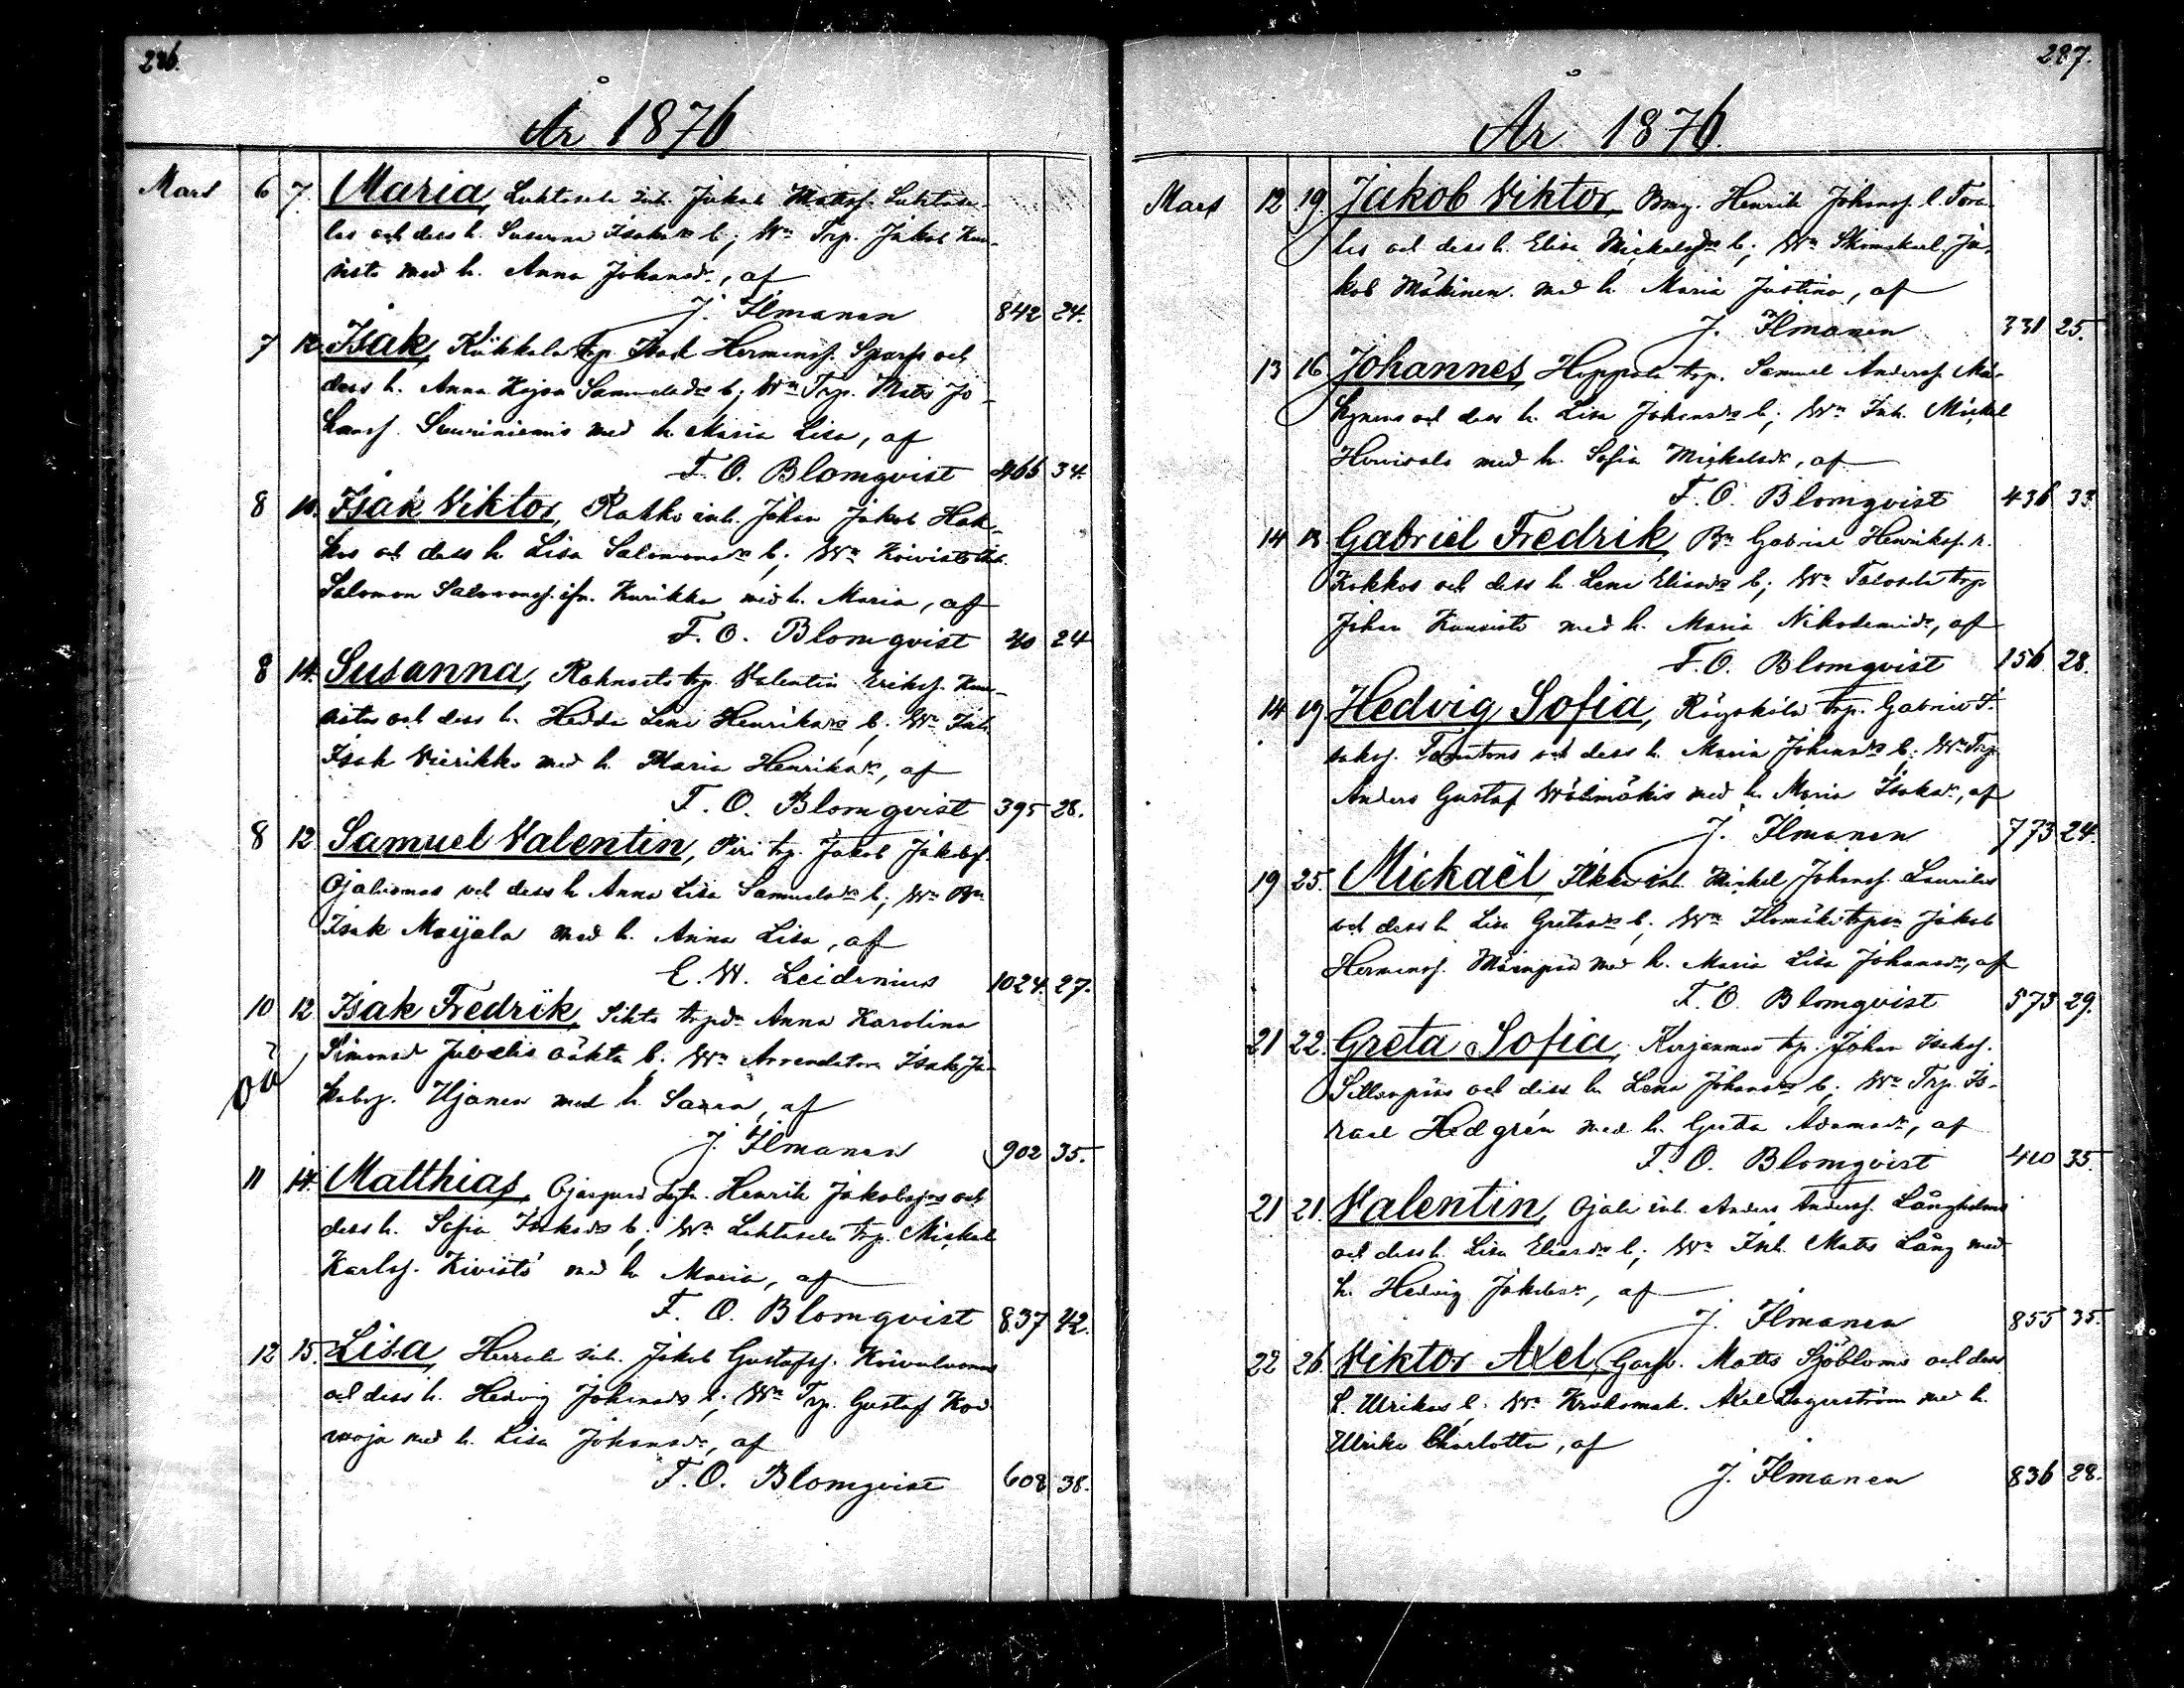 286.
År 1876
Mars 6 7. Maria, Luhtasela inh. Jakob Matts. Luhtase-
las och dess h. Susanna Isaks dr b; Wn Trp. Jakob Kuu-
nisto med h. Anna Johansdr, af
J. Ilmanen 842 24.
7 12. Isak, Kükkala trp. Isak Hermansf. Sparfs och
dess h. Anna Kajsa Samuelsdr b; Wn Trp. Matts Jo-
hansf. Suuriniemis med h. Maria Lisa, af
F. O. Blomqvist 466 34.
8 10. Isak Wiktor, Rahko inh. Johan Jakob Hak-
kos och dess h. Lisa Salomonsdr b; Wn Koivisto inh.
Salomon Salomonsf. ifr. Kurikka med h. Maria, af
F. O. Blomqvist 40 24
8 14. Susanna, Rahnasto trp. Valentin Eriksf. Kuu-
sistos och dess h. Hedda Lena Henriksdr b. Wn Inh.
Isak Vierikko med h. Maria Henriksdr, af
F. O. Blomqvist 395 28.
8 12 Samuel Valentin, Piri trp. Jakob Jakobsf.
Ojaluomas och dess h. Anna Lisa Samuelsdr b; Wn Bn
Isak Marjala med h. Anna Lisa, af
E. W. Leidenius 1024. 27.
10 12 Isak Fredrik, Sihto trpdr Anna Karolina
oä Simonsd Jubelis oäkta b. Wn Arrendatorn Isak Ja-
kobsf. Ujanen med h. Saara, af
J. Ilmanen 902 35.
11 14. Matthias, Ojanperä Henrik Jakobsfos och
dess h. Sofia Isaksdr b; Wn Lehtasela trp. Mickel
Karlsf. Kivistö med h. Maria, af
F. O. Blomqvist 837 42.
12 15. Lisa, Herrala inh. Jakob Gustafsf. Koivuluomas
och dess h. Hedvig Johansdr b; Wn Trp. Gustaf Koi-
vuoja med h. Lisa Johansdr, af
F. O. Blomqvist 608 38.
287.
År 1876.
Mars 12 19 Jakob Wiktor, Bmg. Henrik Johansf. l. Tora-
las och dess h. Elisa Mickelsdr b; Wn Skomakarl. Ja-
kob Mäkinen med h. Maria Justina, af
J. Ilmanen 331 25.
13 16 Johannes, Hoppala trp. Samuel Andersf. Mä-
kynens och dess h. Lisa Johansdr b; Wn Inh. Mickel
Hovisala med h. Sofia Mickelsdr, af
F. O. Blomqvist 436 33
14 18 Gabriel Fredrik, Bn Gabriel Henriksf. r.
Kokkos och dess h. Lena Eliasdr b; Wn Talosela trp.
Johan Kunisto med h. Maria Nikodemidr, af
F. O. Blomqvist 156. 28.
14 19 Hedvig Sofia, Röyskölä trp. Gabriel I-
saksf. Tamitons och dess h. Maria Johansdr b; Wn Trp.
Anders Gustaf Wälimäkis med h. Maria Isaksdr, af
J. Ilmanen 773 24.
19 25. Mickaël, Ilkka inh. Mickel Johansf. Laurilas
och dess h. Lisa Gretasdr b; Wn Ilomäki trpsn Jakob
Hermansf. Mäenpää med h. Maria Lisa Johansdr, af
F. O. Blomqvist 573 29.
21 22. Greta Sofia, Kirjanmaa trp. Johan Isaksf.
Sillanpääs och dess h. Lena Johansdr b. Wn Trp. Is-
rael Hedgrén med h. Greta Adamsdr, af
F. O. Blomqvist 410 35.
21 21. Valentin, Ojala inh. Anders Andersf. Långholms
och dess h. Lisa Eliasdr b; Wn Inh. Matts Lång med
h. Hedvig Jakobsdr, af
J. Ilmanen 855 35.
22 26. Wiktor Axel, Garfv. Matts Sjöbloms och dess
h. Ulrikas b. Wn Krukomak. Axel Lagerström med h.
Ulrika Charlotta, af
J. Ilmanen 836 28.